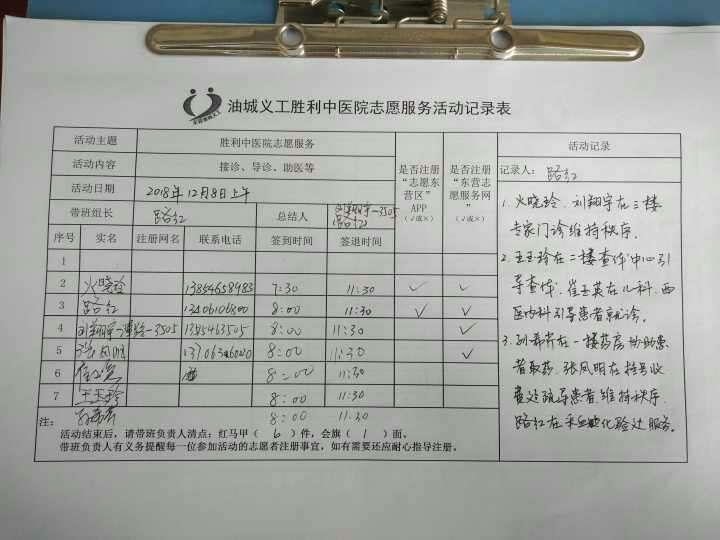 油城义工胜利中医院志愿服务活动记录表
活动主题 胜利中医院志愿服务
活动内容 接诊、导诊、助医等
活动日期 2018年12月8日上午
带班组长 路红 总结人 路红
是否注册“志愿东营区”APP（√或×）
是否注册“东营志愿服务网”（√或×）
序号 实名 注册网名 联系电话 签到时间 签退时间
1
2 火晓玲 13854658983 7:30 11:30 ✓ ✓
3 路红 13406106800 8:00 11:30 ✓ ✓
4 刘翔宇 8:00 11:30 ✓
5 张凤明 8:00 11:30 ✓
6 8:00 11:30
7 王玉玲 8:00 11:30
8:00 11:30
注：
活动结束后，请带班负责人清点：红马甲（ 6 ）件，会旗（ 1 ）面。
带班负责人有义务提醒每一位参加活动的志愿者注册事宜，如有需要还应耐心指导注册。
活动记录
记录人：路红
1. 火晓玲、刘翔宇在三楼
专家门诊维持秩序。
2. 王玉玲在二楼查体中心引
导查体，崔玉英在儿科、西
医内科引导患者就诊。
3. 在一楼药房协助患
者取药，张凤明在挂号收
费处疏导患者、维持秩序
路红在采血化验处服务。